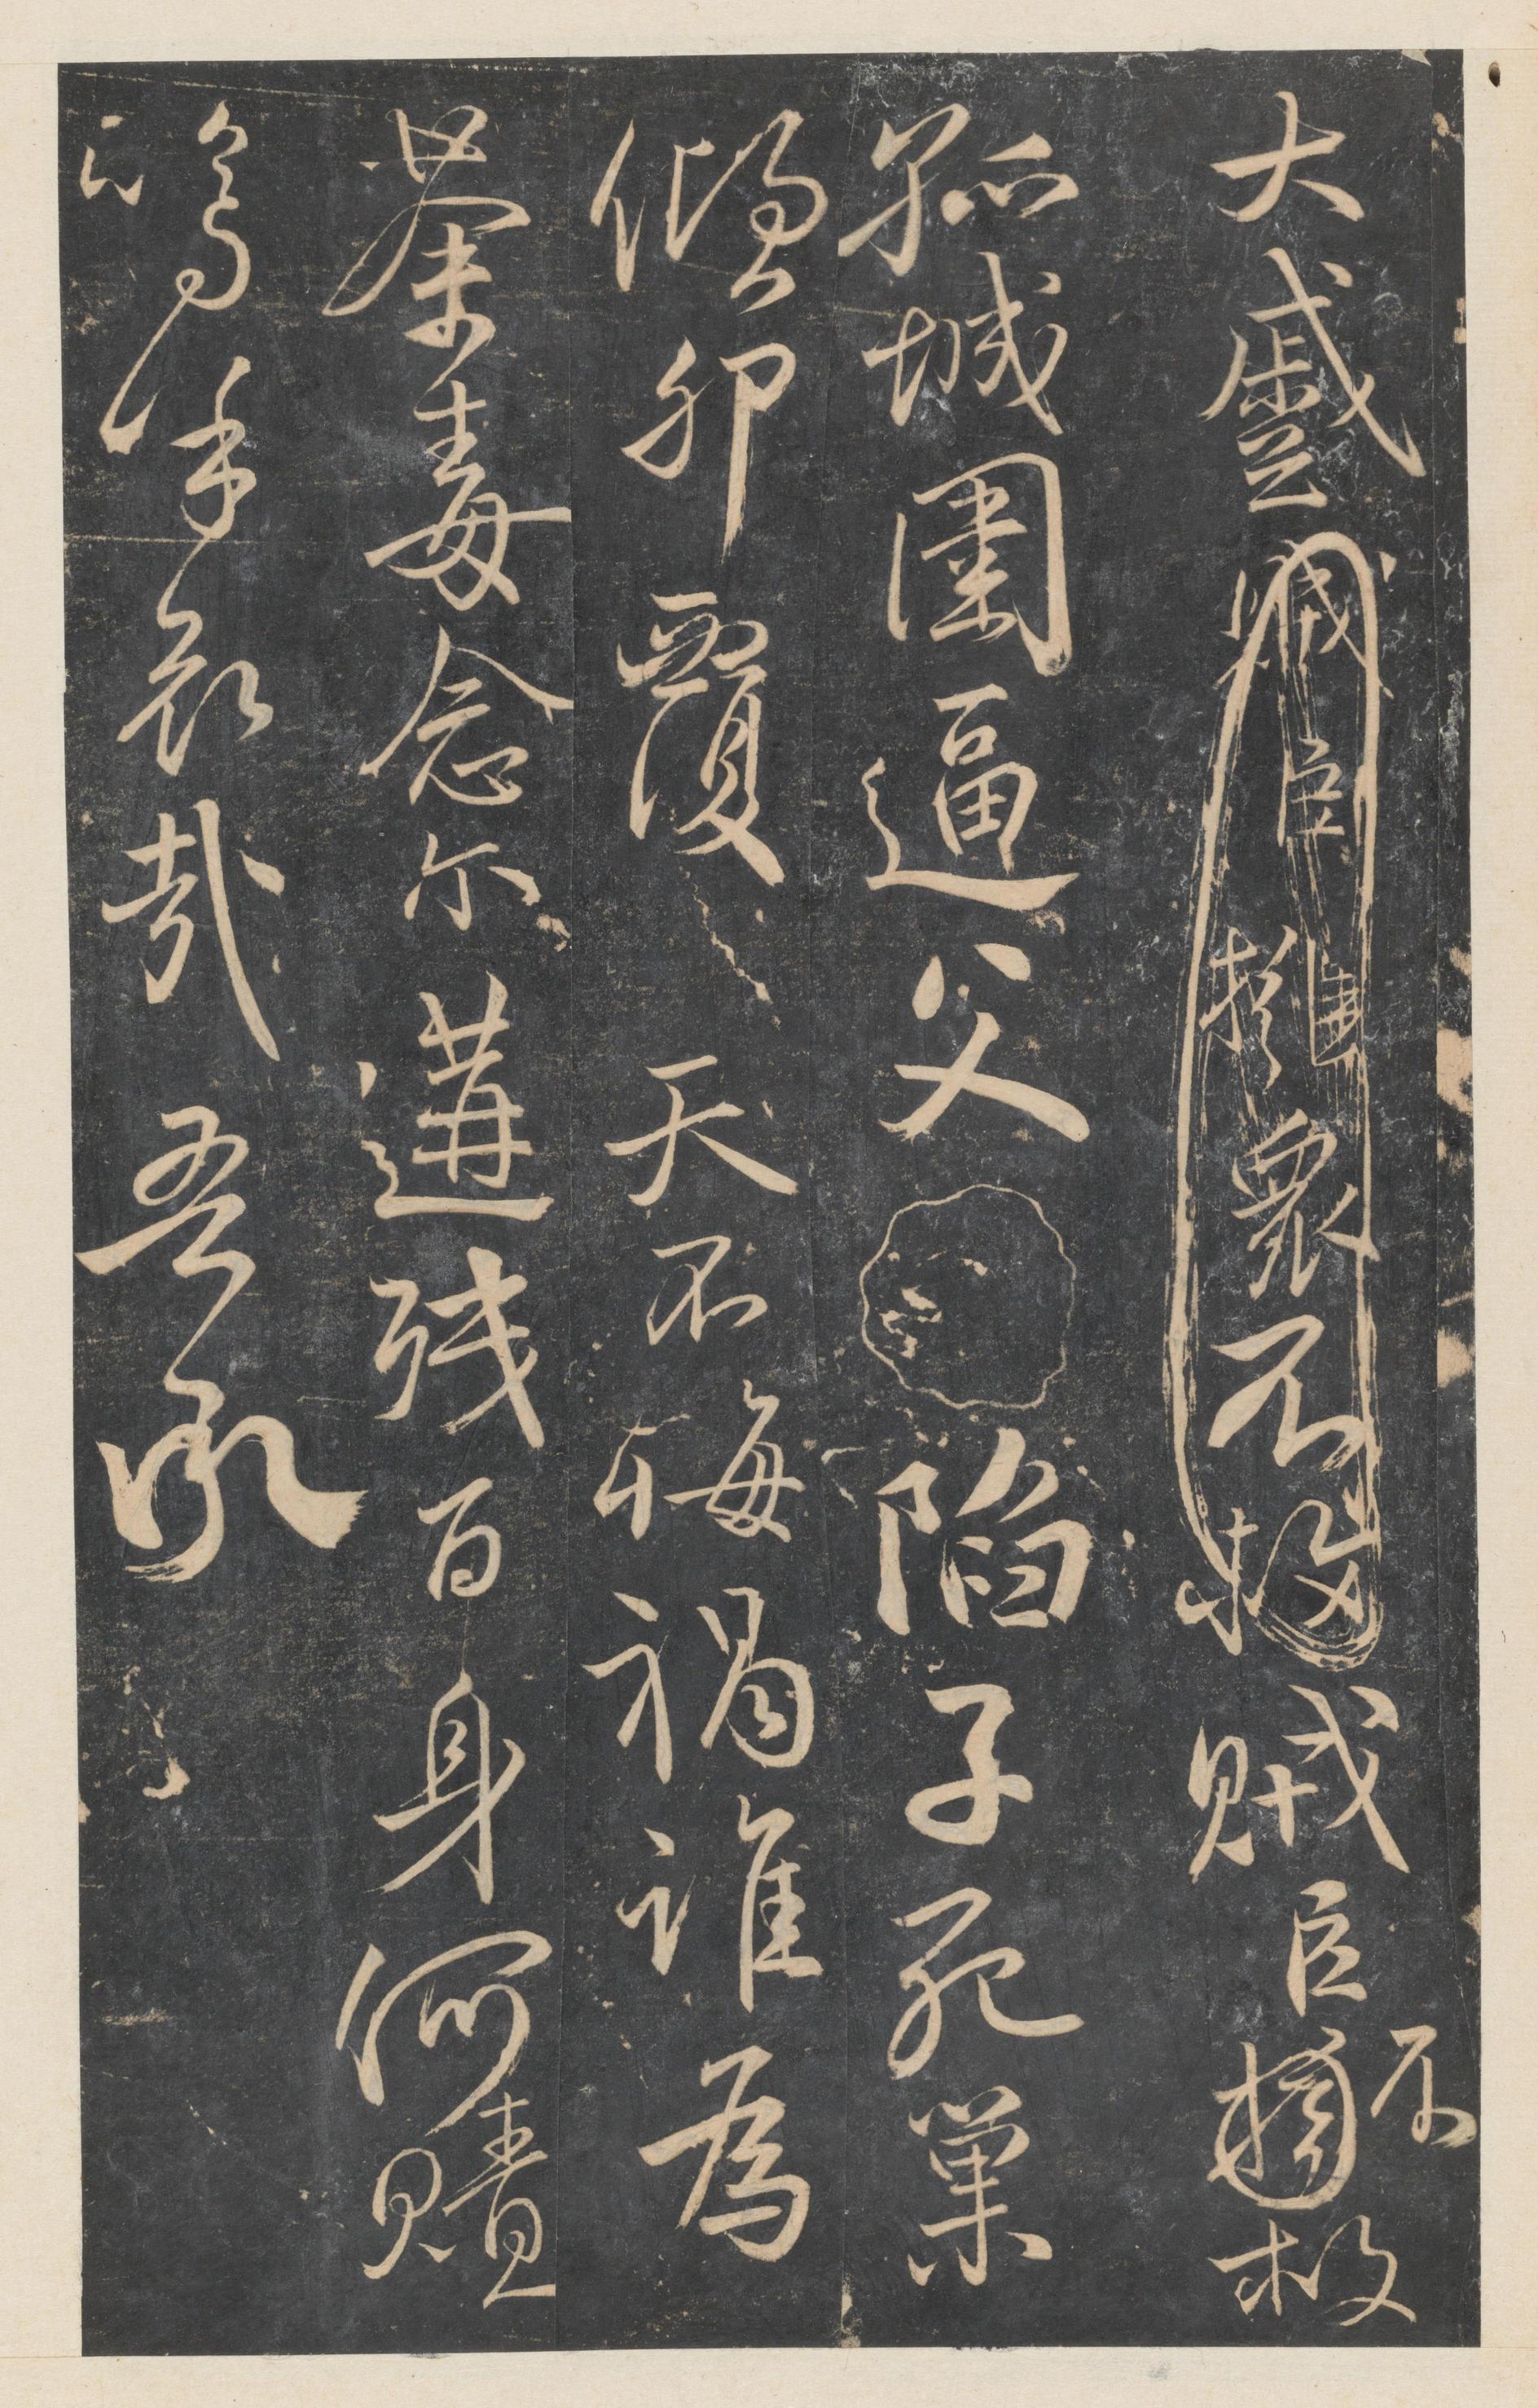 大蹙賊臣擁衆不救賊臣不擁救
孤城圍逼父陷子死巢
傾卵覆天不悔禍誰為
荼毒念尔遘殘百身何贖
嗚呼哀哉吾承